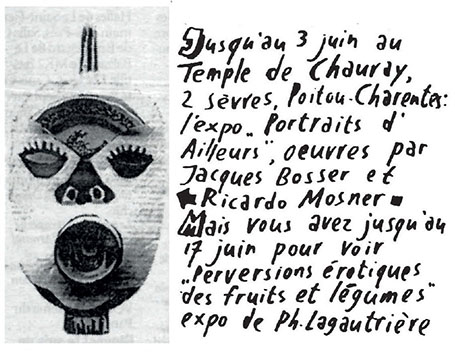 Jusqu'au 3 juin au
Temple de Chauray,
2 sèvres, Poitou-Charentes:
l'expo „Portraits d'
Ailleurs", oeuvres par
Jacques Bosser et
Ricardo Mosner
Mais vous avez jusqu'au
17 juin pour voir
„Perversions érotiques
des fruits et légumes"
expo de Ph. Lagautrière